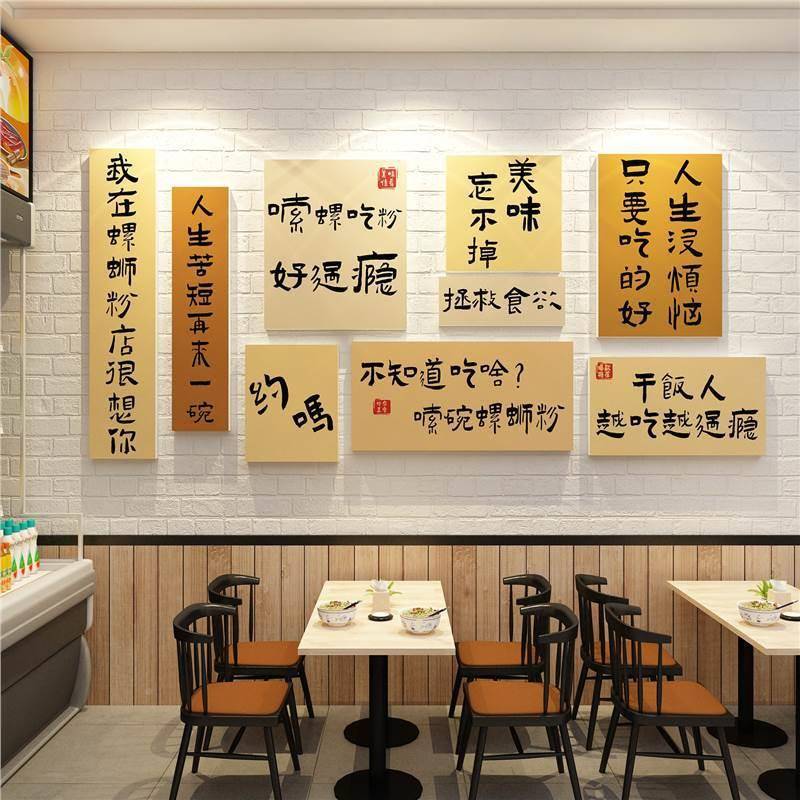 我在螺蛳粉店很想你
人生苦短再来一碗
嗦螺吃粉
好过瘾
约嗎
美味
忘不掉
拯救食欲
不知道吃啥？
嗦碗螺蛳粉
人生没煩恼
只要吃的好
干飯人
越吃越过瘾